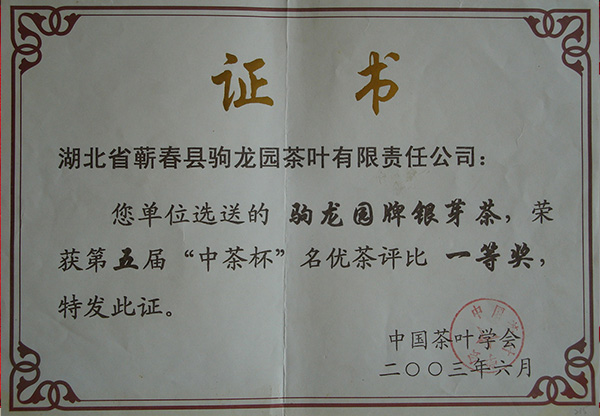 证书
湖北省蕲春县驹龙园茶叶有限责任公司：
您单位选送的 驹龙园牌银芽茶，荣
获第五届“中茶杯”名优茶评比 一等奖，
特发此证。
中国茶叶学会
二〇〇三年六月